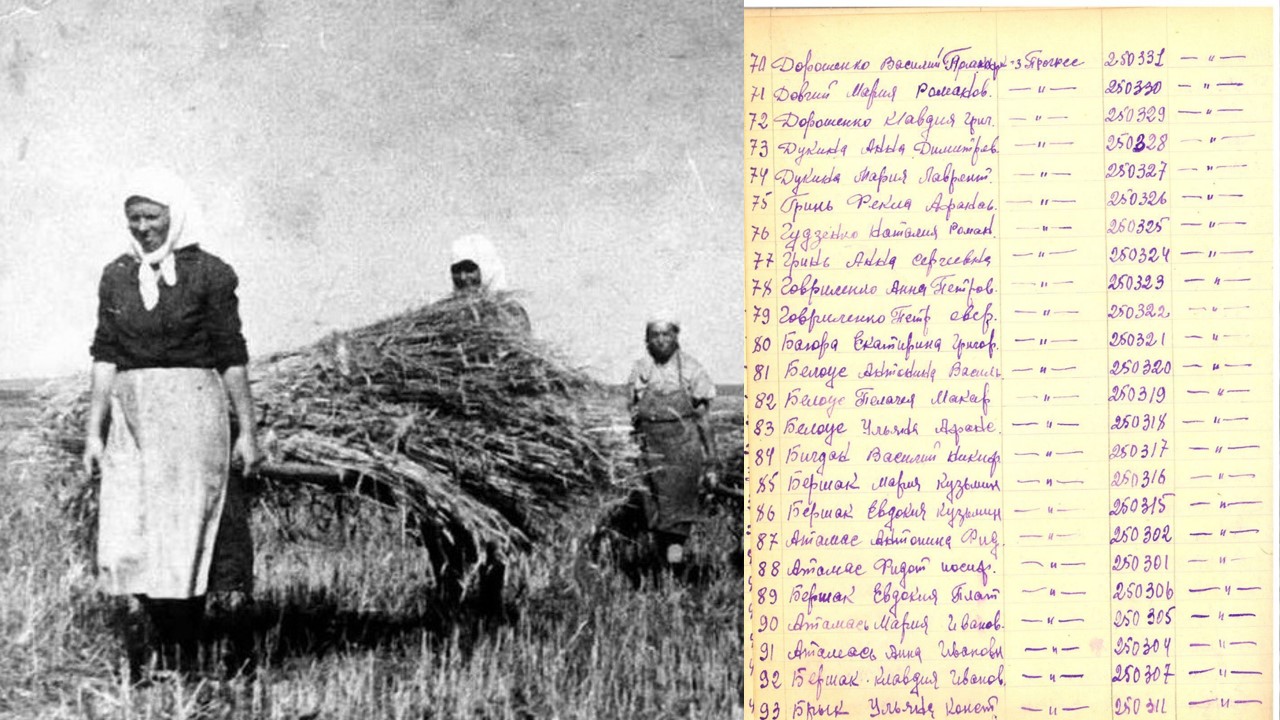 70 Дорошенко Василий к-з Прогресс 250331 — " —
71 Довгий Мария Романов. — " — 250330 — " —
72 Дорошенко Клавдия Григ. — " — 250329 — " —
73 Дукина Анна Димитров. — " — 250328 — " —
74 Дукина Мария Лаврент. — " — 250327 — " —
75 Гринь Фекла Афанас. — " — 250326 — " —
76 Гудзенко Наталия Роман. — " — 250325 — " —
77 Гринь Анна Сергеевна — " — 250324 — " —
78 Говриленко Анна Петров. — " — 250323 — " —
79 Говриленко Петр — " — 250322 — " —
80 Багора Екатирина Григор. — " — 250321 — " —
81 Белоус Антонина Василь — " — 250320 — " —
82 Белоус Пелагея Макар — " — 250319 — " —
83 Белоус Ульяна Афанс. — " — 250318 — " —
84 Василий Никиф. — " — 250317 — " —
85 Бершак Мария Кузьмин — " — 250316 — " —
86 Бершак Евдокия Кузьмин — " — 250315 — " —
87 Атамас Антонина — " — 250302 — " —
88 Атамас Фидот иосиф. — " — 250301 — " —
89 Бершак Евдокия Плат — " — 250306 — " —
90 Атамась Мария Иванов. — " — 250305 — " —
91 Атамась Анна Ивановн — " — 250304 — " —
92 Бершак Клавдия Иванов. — " — 250307 — " —
93 Брык Ульяна Конст. — " — 250311 — " —